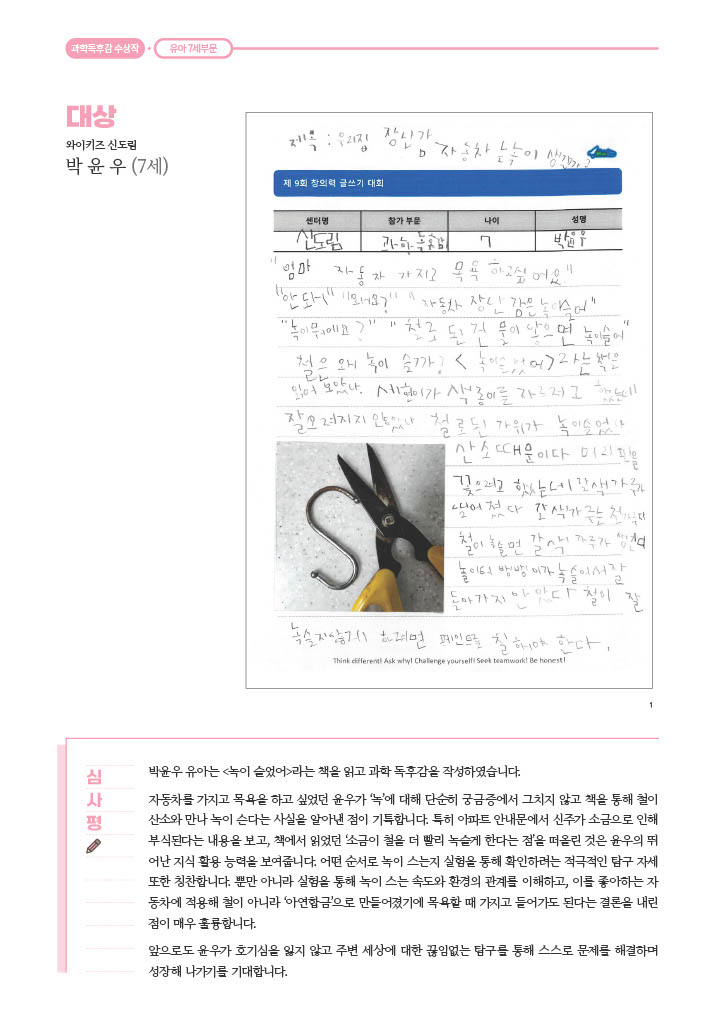 과학독후감 수상작
유아 7세부문
대상
와이키즈 신도림
박 윤 우 (7세)
제목 : 우리집 장난감 자동차 는 녹이 생길까?
제 9회 창의력 글쓰기 대회
센터명 참가 부문 나이 성명
신도림 과학독후감 7 박윤우
"엄마 자동차 가지고 목욕 하고싶어요"
"안돼" "왜요?" "자동차 장난감은 녹이슬어"
"녹이뭐에요?" "철로 된건 물이 닿으면 녹이슬어"
철은 왜 녹이 슬까? <녹이슬었어>라는 책을
읽어 보았다. 세현이가 색종이를 자르려고 했는데
잘오려지지 안았다 철로된 가위가 녹이슬었다
산소때문이다 머리핀을
꽂으려고 했는데 갈색가루가
떨어졌다 갈색가루는
철이 녹슬면 갈색 가루가 생긴다
놀이터 뱅뱅이가녹슬어서잘
돌아가지 안았다 철이 잘
녹슬지않게 하려면 페인트를 칠해야 한다.
Think different! Ask why! Challenge yourself! Seek teamwork! Be honest!
1
심
사
평
박윤우 유아는 <녹이 슬었어>라는 책을 읽고 과학 독후감을 작성하였습니다.
자동차를 가지고 목욕을 하고 싶었던 윤우가 '녹'에 대해 단순히 궁금증에서 그치지 않고 책을 통해 철이
산소와 만나 녹이 슨다는 사실을 알아낸 점이 기특합니다. 특히 아파트 안내문에서 신주가 소금으로 인해
부식된다는 내용을 보고, 책에서 읽었던 '소금이 철을 더 빨리 녹슬게 한다는 점'을 떠올린 것은 윤우의 뛰
어난 지식 활용 능력을 보여줍니다. 어떤 순서로 녹이 스는지 실험을 통해 확인하려는 적극적인 탐구 자세
또한 칭찬합니다. 뿐만 아니라 실험을 통해 녹이 스는 속도와 환경의 관계를 이해하고, 이를 좋아하는 자
동차에 적용해 철이 아니라 '아연합금'으로 만들어졌기에 목욕할 때 가지고 들어가도 된다는 결론을 내린
점이 매우 훌륭합니다.
앞으로도 윤우가 호기심을 잃지 않고 주변 세상에 대한 끊임없는 탐구를 통해 스스로 문제를 해결하며
성장해 나가기를 기대합니다.